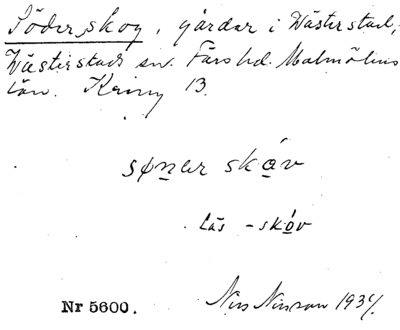 Söderskog, gårdar i Västerstad,
Västerstads sn. Färs hd. Malmöhus
län. 13.
sønər skǻv
läs -skǻv
Nr 5600. Nils Nilsson 1934.